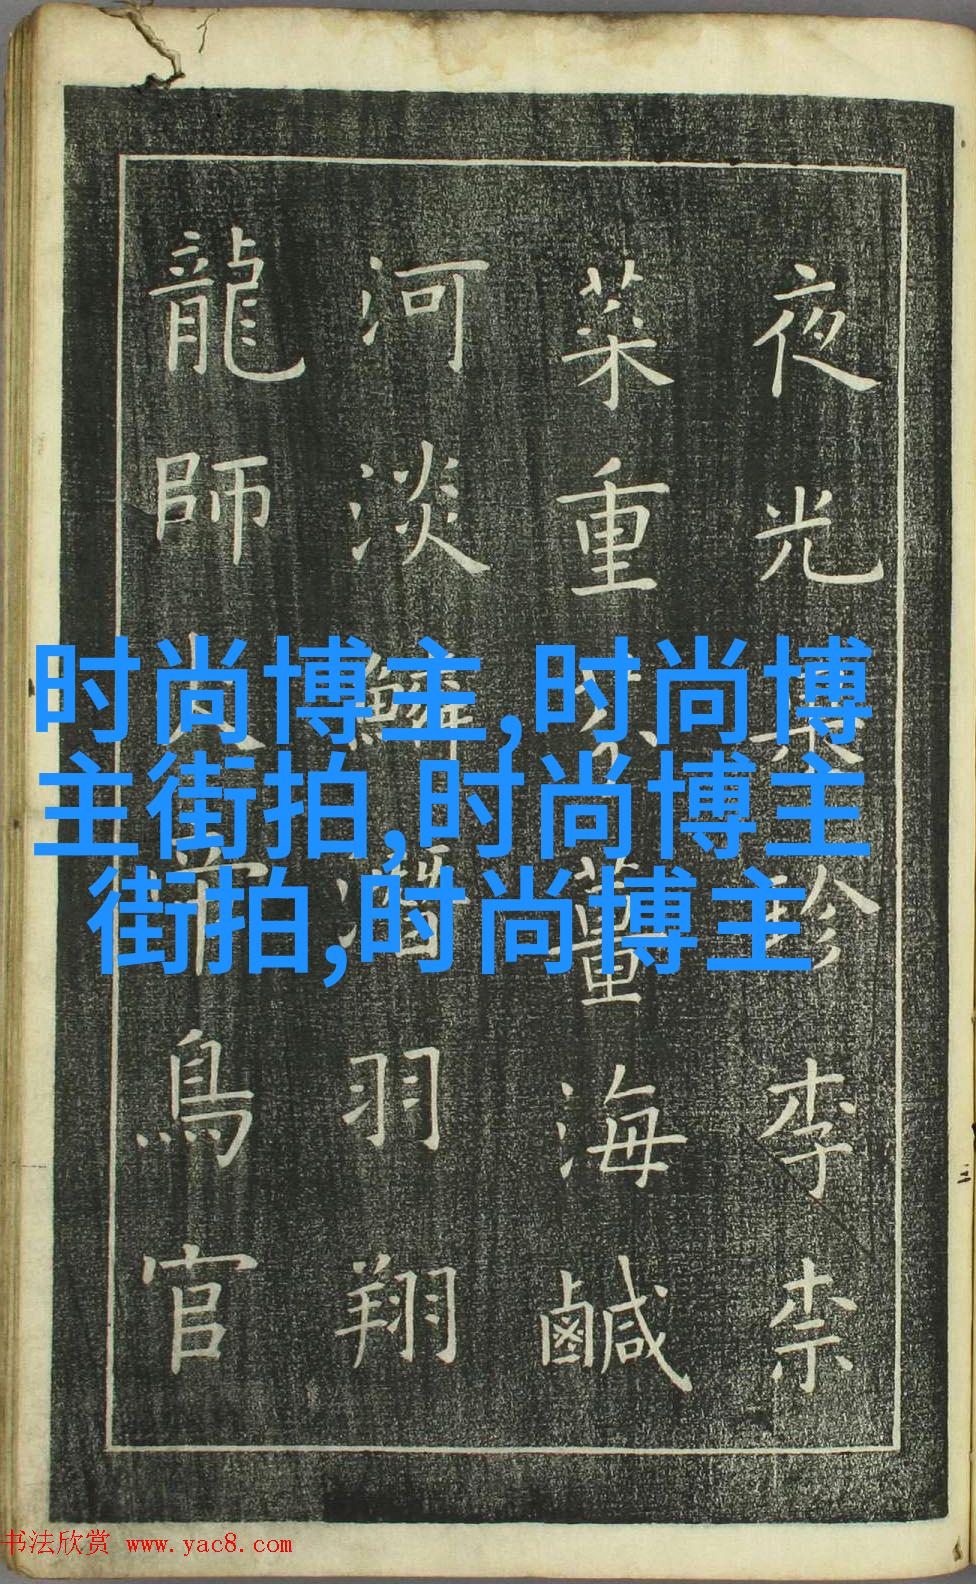 夜光果珍李柰
菜重芥薑海鹹
河淡鱗潛羽翔
龍師火帝鳥官
时尚博主,时尚博
主街拍,时尚博主
街拍,时尚博主
书法欣赏 www.yac8.com